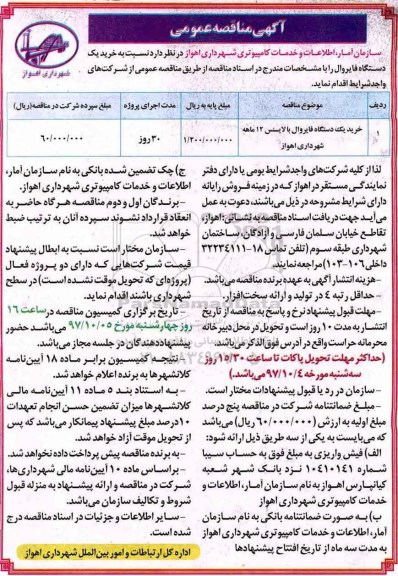 آگهی مناقصه عمومی
شهرداری اهواز
سازمان آمار، اطلاعات و خدمات کامپیوتری شهرداری اهواز در نظر دارد نسبت به خرید یک
دستگاه فایروال را با مشخصات مندرج در اسناد مناقصه از طریق مناقصه عمومی از شرکت‌های
واجد شرایط اقدام نماید.
ردیف موضوع مناقصه مبلغ پایه به ریال مدت اجرای پروژه مبلغ سپرده شرکت در مناقصه (ریال)
۱ خرید یک دستگاه فایروال با لایسنس ۱۲ ماهه شهرداری اهواز ۱/۲۰۰/۰۰۰/۰۰۰ ۳۰ روز ۶۰/۰۰۰/۰۰۰
لذا از کلیه شرکت‌های واجد شرایط بومی یا دارای دفتر
نمایندگی مستقر در اهواز که در زمینه فروش رایانه
دارای شرایط مشروحه در ذیل می‌باشند، دعوت به عمل
می‌آید جهت دریافت اسناد مناقصه به نشانی: اهواز،
تقاطع خیابان سلمان فارسی و آزادگان، ساختمان
شهرداری طبقه سوم (تلفن تماس ۱۸-۳۲۲۳۴۱۱۱
داخلی ۱۰۶-۱۰۳) مراجعه نمایند.
- هزینه انتشار آگهی به عهده برنده مناقصه می‌باشد.
- حداقل رتبه ۴ در تولید و ارائه سخت‌افزار.
- مهلت قبول پیشنهاد نرخ و پاسخ به مناقصه از تاریخ
انتشار به مدت ۱۰ روز است و تحویل در محل دبیرخانه
محرمانه حراست واقع در آدرس فوق‌الذکر می‌باشد.
(حداکثر مهلت تحویل پاکات تا ساعت ۱۵/۳۰ روز
سه‌شنبه مورخه ۹۷/۱۰/۴ می‌باشد)
- سازمان در رد یا قبول پیشنهادات مختار است.
- مبلغ ضمانتنامه شرکت در مناقصه پنج درصد
مبلغ اولیه به ارزش (۶۰/۰۰۰/۰۰۰ ریال) می‌باشد
که می‌بایست به یکی از سه طریق ذیل ارائه شود:
الف) فیش واریزی به مبلغ فوق به حساب سیبا
شماره ۱۰۴۱۰۱۴۱ نزد بانک شهر شعبه
کیانپارس اهواز به نام سازمان آمار، اطلاعات و
خدمات کامپیوتری شهرداری اهواز
ب) به صورت ضمانتنامه بانکی به نام سازمان
آمار، اطلاعات و خدمات کامپیوتری شهرداری اهواز
به مدت سه ماه از تاریخ افتتاح پیشنهادها
ج) چک تضمین شده بانکی به نام سازمان آمار،
اطلاعات و خدمات کامپیوتری شهرداری اهواز.
- برندگان اول و دوم مناقصه هر گاه حاضر به
انعقاد قرارداد نشوند سپرده آنان به ترتیب ضبط
خواهد شد.
- سازمان مختار است نسبت به ابطال پیشنهاد
قیمت شرکت‌هایی که دارای دو پروژه فعال
(پروژه‌ای که تحویل موقت نشده است) در سطح
شهرداری باشند اقدام نماید.
- تاریخ برگزاری کمیسیون مناقصه در ساعت ۱۶
روز چهارشنبه مورخ ۹۷/۱۰/۰۵ می‌باشد حضور
پیشنهاددهندگان در جلسه مجاز می‌باشد.
- نتیجه کمیسیون برابر ماده ۱۸ آیین‌نامه
کلانشهرها به برنده اعلام خواهد شد.
- به استناد بند ۵ ماده ۱۱ آیین‌نامه مالی
کلانشهرها میزان تضمین حسن انجام تعهدات
۱۰ درصد مبلغ پیشنهاد پیمانکار می‌باشد که پس
از تحویل موقت آزاد خواهد شد.
- به برنده مناقصه پیش پرداخت داده نخواهد شد.
- براساس ماده ۱۰ آیین‌نامه مالی شهرداری‌ها،
شرکت در مناقصه و ارائه پیشنهاد به منزله قبول
شروط و تکالیف سازمان می‌باشد.
- سایر اطلاعات و جزئیات در اسناد مناقصه درج
شده است.
اداره کل ارتباطات و امور بین‌الملل شهرداری اهواز